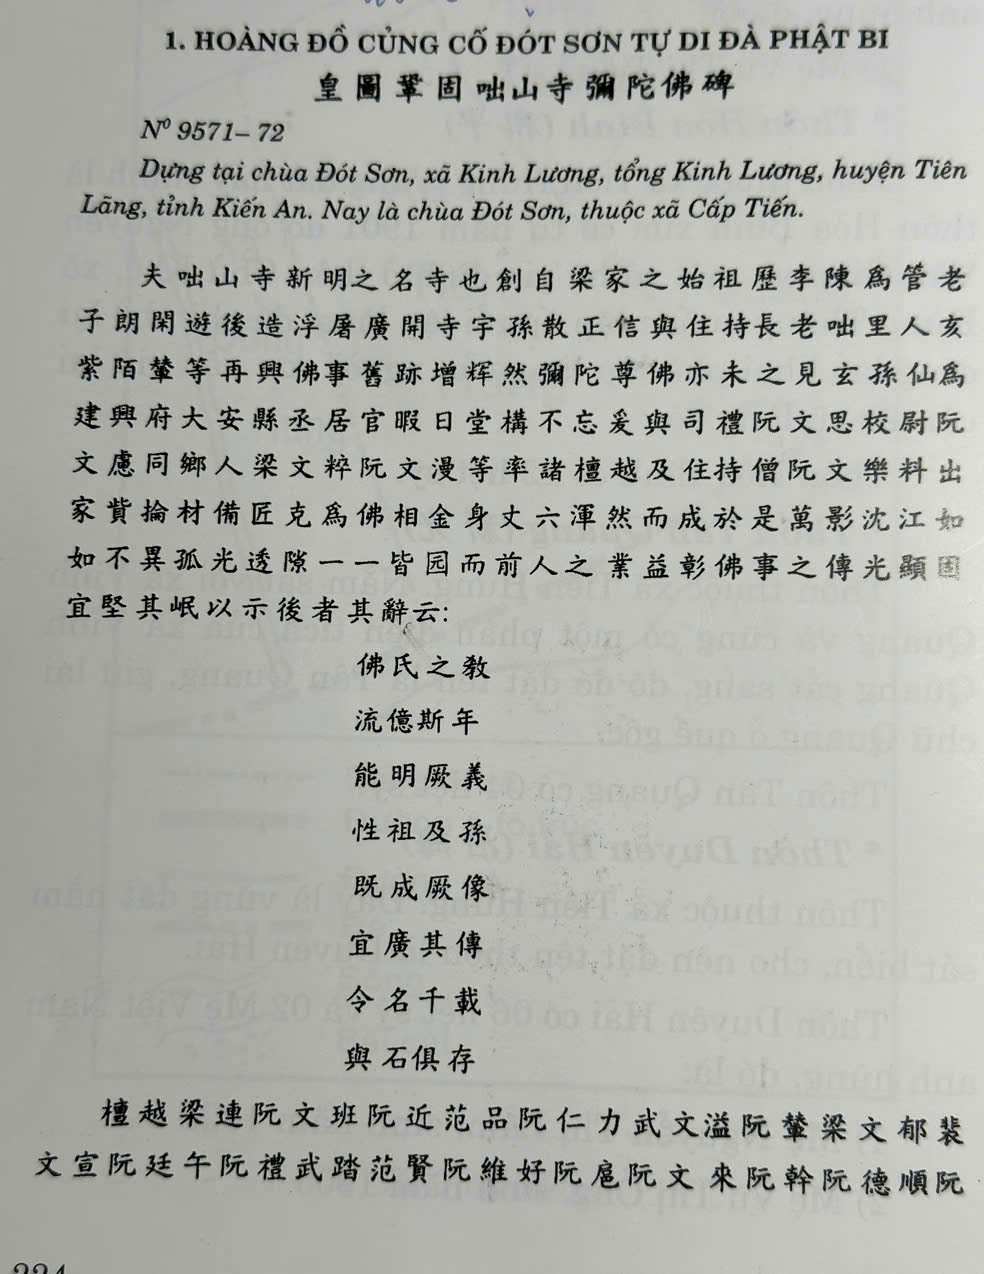 1. HOÀNG ĐỒ CỦNG CỐ ĐÓT SƠN TỰ DI ĐÀ PHẬT BI
皇圖鞏固咄山寺彌陀佛碑
Nº 9571– 72
Dựng tại chùa Đót Sơn, xã Kinh Lương, tổng Kinh Lương, huyện Tiên
Lãng, tỉnh Kiến An. Nay là chùa Đót Sơn, thuộc xã Cấp Tiến.
夫咄山寺新明之名寺也創自梁家之始祖歷李陳爲管老
子朗閑遊後造浮屠廣開寺宇孫散正信與住持長老咄里人亥
紫陌輦等再興佛事舊跡增辉然彌陀尊佛亦未之見玄孫仙爲
建興府大安縣丞居官暇日堂構不忘爰與司禮阮文思校尉阮
文慮同鄉人梁文粹阮文漫等率諸檀越及住持僧阮文樂料出
家貲掄材備匠克爲佛相金身丈六渾然而成於是萬影沈江如
如不異孤光透隙一一皆园而前人之業益彰佛事之傳光顯固
宜堅其岷以示後者其辭云:
佛氏之教
流億斯年
能明厥義
性祖及孫
既成厥像
宜廣其傳
令名千載
與石俱存
檀越梁連阮文班阮近范品阮仁力武文溢阮輦梁文郁裴
文宣阮廷午阮禮武踏范賢阮維好阮扈阮文來阮幹阮德順阮